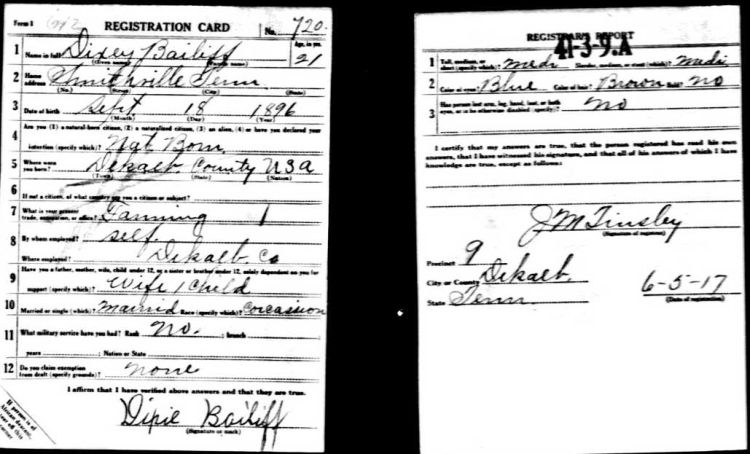 Form 1 REGISTRATION CARD No. 720
1 Name in full Dixey Bailiff Age, in yrs. 21
(Given name) (Family name)
2 Home address Smithville Tenn
(No.) (Street) (City) (State)
3 Date of birth Sept 18 1896
(Month) (Day) (Year)
4 Are you (1) a natural-born citizen, (2) a naturalized citizen, (3) an alien, (4) or have you declared your
intention (specify which)? Nat Born
5 Where were you born? Dekalb County USA
(Town) (State) (Nation)
6 If not a citizen, of what country are you a citizen or subject?
7 What is your present trade, occupation, or office? Farming 1
8 By whom employed? self
Where employed? Dekalb Co
9 Have you a father, mother, wife, child under 12, or a sister or brother under 12, solely dependent on you for
support (specify which)? Wife 1 Child
10 Married or single (which)? Married Race (specify which)? Corcassion
11 What military service have you had? Rank No. ; branch ;
years ; Nation or State
12 Do you claim exemption from draft (specify grounds)? none
I affirm that I have verified above answers and that they are true.
Dixie Bailiff
(Signature or mark)
If person is of
African descent,
tear off this
corner
REGISTRAR'S REPORT
41-3-9.A
1 Tall, medium, or short (specify which)? Medi Slender, medium, or stout (which)? Medi
2 Color of eyes? Blue Color of hair? Brown Bald? No
3 Has person lost arm, leg, hand, foot, or both
eyes, or is he otherwise disabled (specify)? No
I certify that my answers are true, that the person registered has read his own
answers, that I have witnessed his signature, and that all of his answers of which I have
knowledge are true, except as follows:
J M Tinsley
(Signature of registrar)
Precinct 9
City or County Dekalb.
State Tenn 6-5-17
(Date of registration)